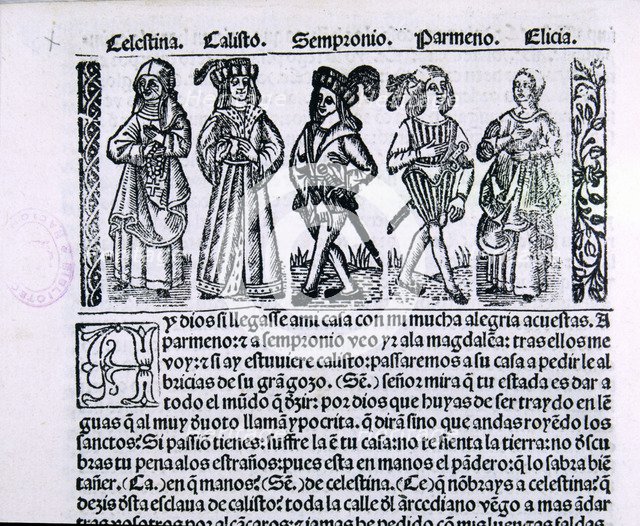 Celestina. Calisto. Sempronio. Parmeno. Elicia.
Ay dios si llegasse a mi casa con mi mucha alegria acuestas. A
parmeno: ⁊ a sempronio veo yr a la magdalẽa: tras ellos me
voy: ⁊ si ay estuuiere calisto: passaremos a su casa a pedir le al
bricias de su grã gozo. (Sẽ.) señor mira q̃ tu estada es dar a
todo el mũdo q̃ dzir: por dios que huyas de ser traydo en lẽ
guas q̃ al muy dũoto llamã ypocrita. q̃ dirã sino que andas royẽdo los
sanctos? Si passiõ tienes: suffre la ẽ tu casa: no te siẽnta la tierra: no dscu
bras tu pena a los estraños: pues esta en manos el pãdero: q̃ lo sabra biẽ
tañer. (Ca.) en q̃ manos? (Sẽ.) de celestina. (Ce) q̃ nõbrays a celestina? q̃
dezis dsta esclaua de calisto? toda la calle dl arcediano vẽgo a mas ãdar